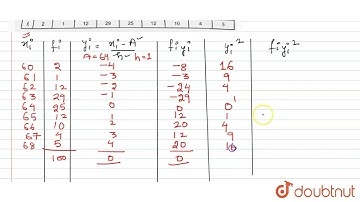 f 2 1 12 29 25 12 10 4 5
xi fi yi = xi - A / h fiyi yi² fiyi²
A = 64, h = 1
60 2 -4 -8 16
61 1 -3 -3 9
62 12 -2 -24 4
63 29 -1 -29 1
64 25 0 0 0
65 12 1 12 1
66 10 2 20 4
67 4 3 12 9
68 5 4 20 16
100 0 0
doubtnut